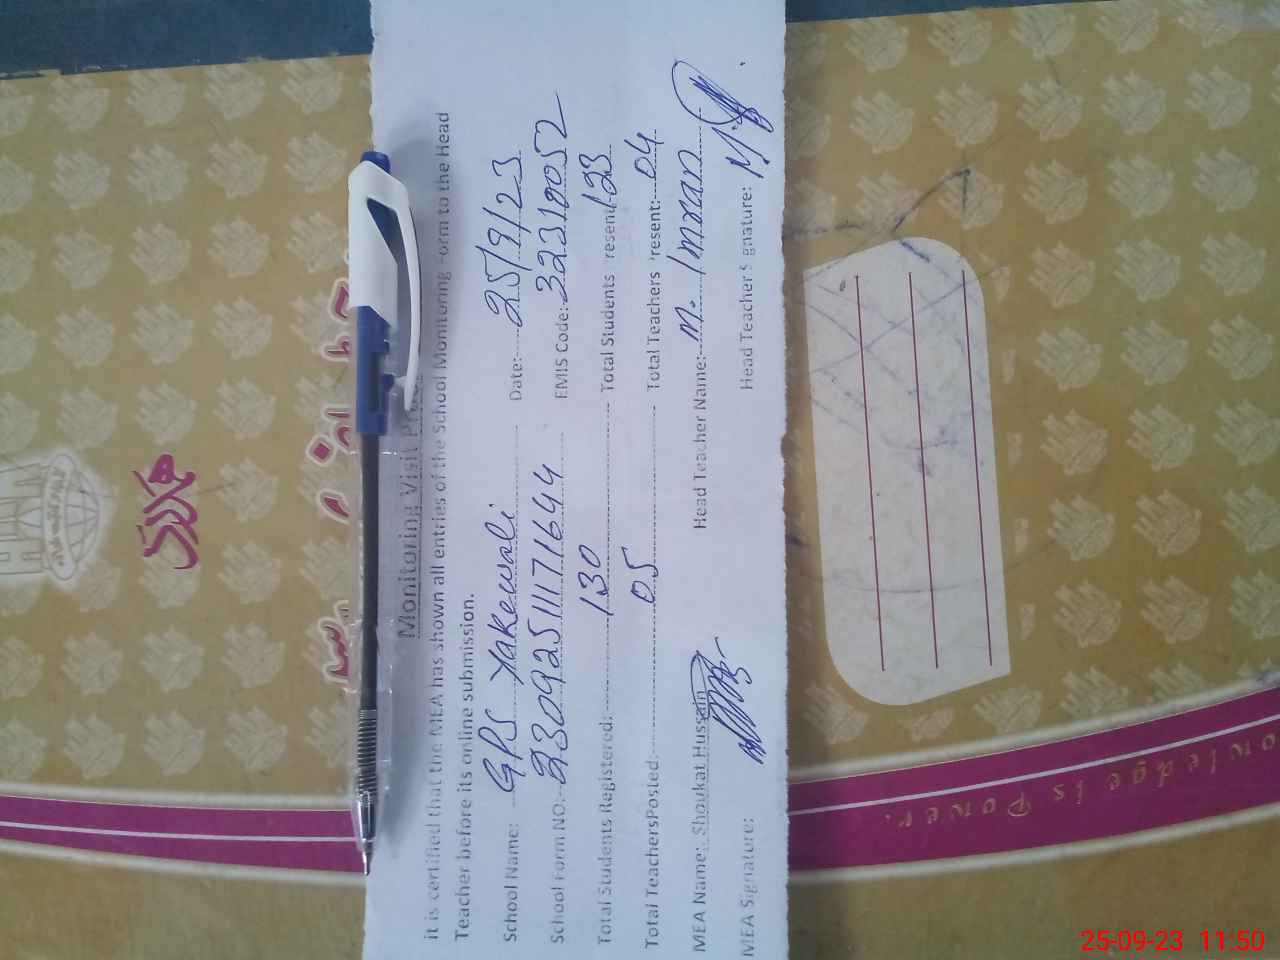 Monitoring Visit
it is certified that the MEA has shown all entries of the School Monitoring -orm to the Head
Teacher before its online submission.
School Name: GPS Yakewali Date: 25/9/23
School Form NO.- 230925111171644 EMIS Code: 32319052
Total Students Registered: 130 Total Students resent 123
Total TeachersPosted: 05 Total Teachers resent: 04
MEA Name: Shoukat Hussain Head Teacher Name: M. Imran
MEA Signature: Head Teacher S gnature:
ھمارا
owledge is Power.
25-09-23 11:50